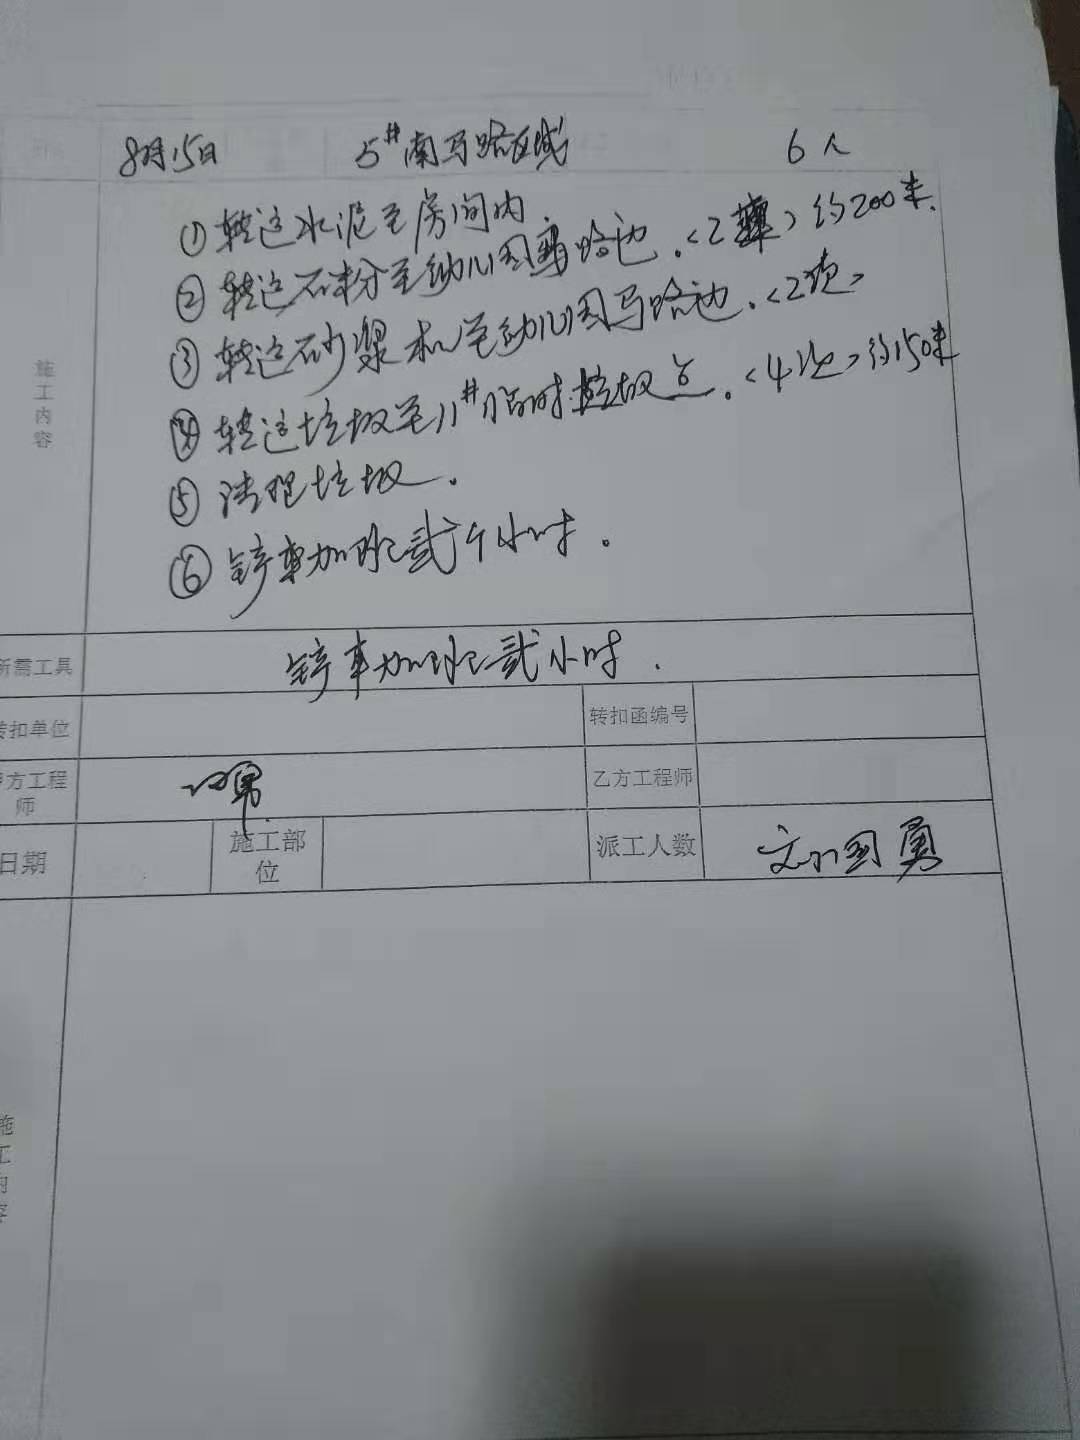 8月15日 5#南马路区域 6人
①转运水泥至房间内
②转运石粉至幼儿园马路边.<2车>约200米.
③转运砂浆机至幼儿园马路边.<2次>
④转运垃圾至11#临时垃圾点.<4次>约150米
⑤清理垃圾.
⑥铲车加班贰个小时.
施工内容
所需工具 铲车加班贰小时.
转扣单位 转扣函编号
甲方工程师 乙方工程师
日期 施工部位 派工人数
施工内容